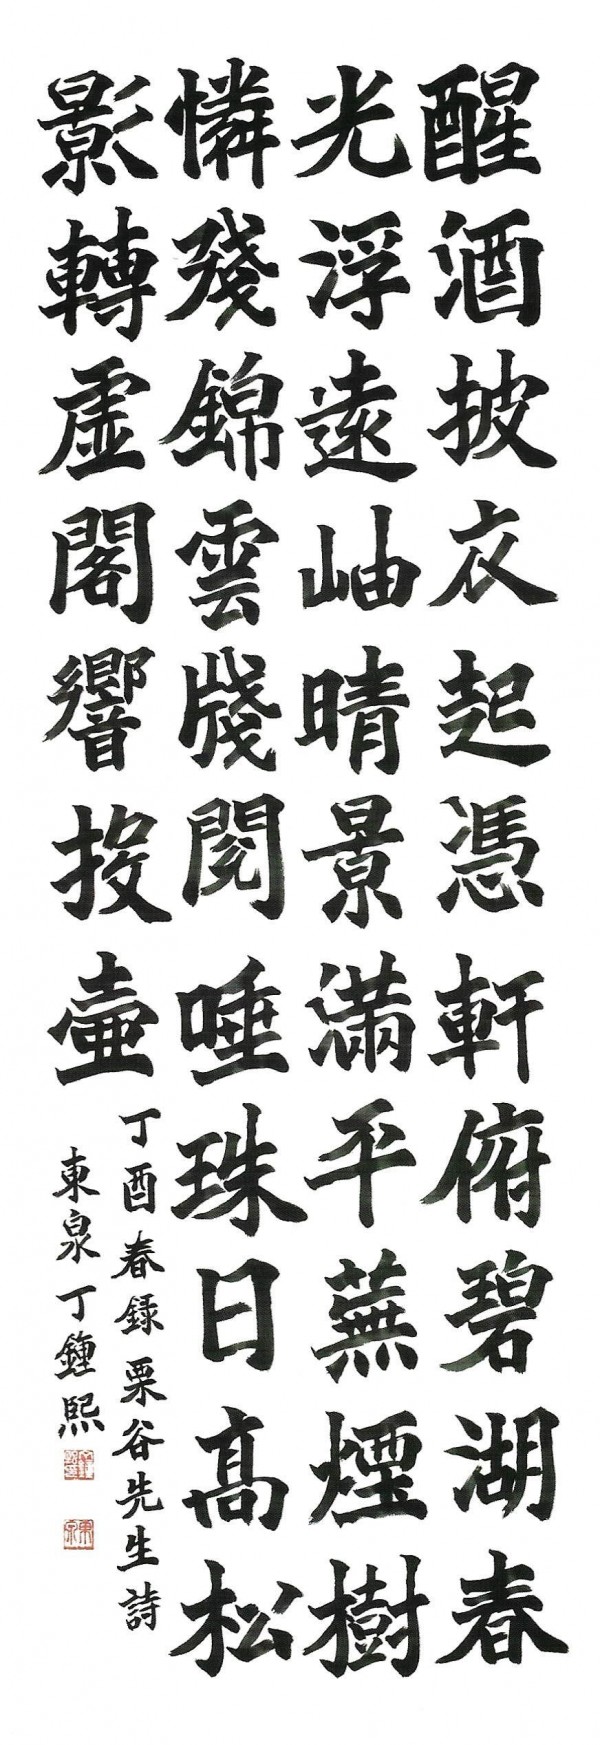 醒酒披衣起憑軒俯碧湖春
光浮遠岫晴景滿平蕪煙樹
憐殘錦雲牋閱唾珠日高松
影轉虛閣響投壺
丁酉春録栗谷先生詩
東泉丁鍾熙